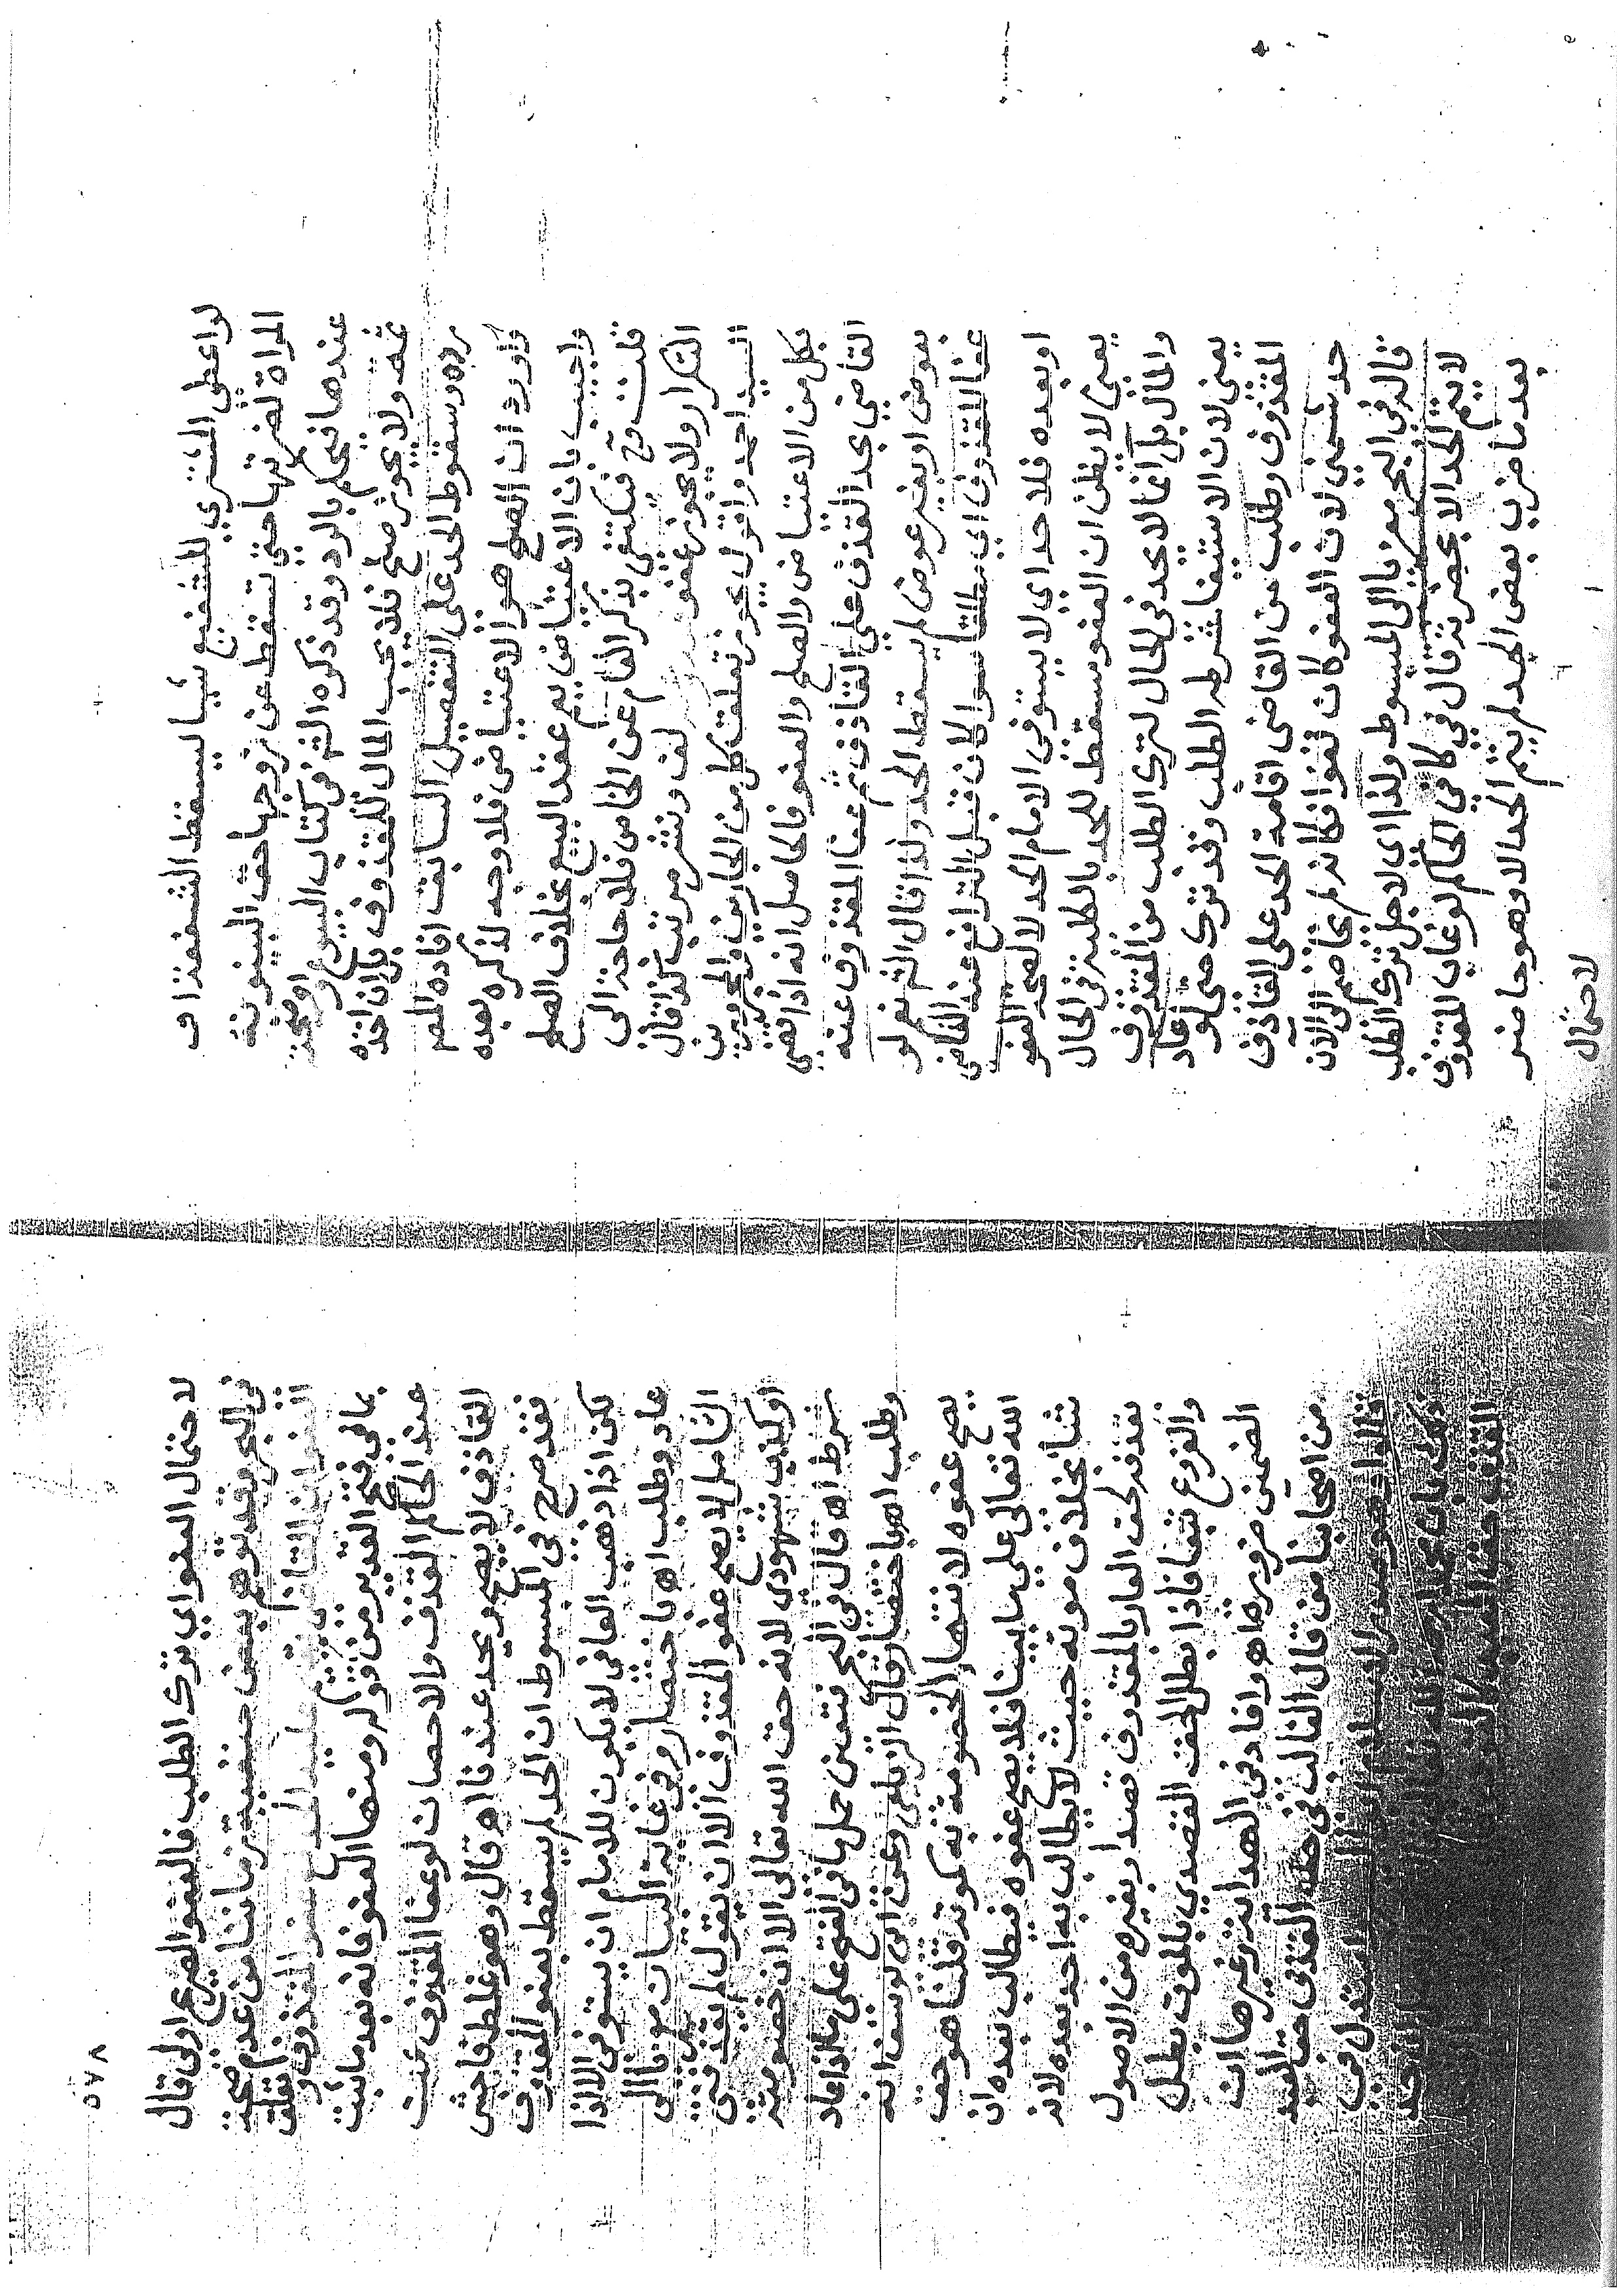 لو اعطى المشتري للشفيع شيا ليسقط الشفعة او
المراة لضرتها حتى تسقط عن زوجها حق البينونة
عندها فحكم بالرد وقد ذكره الشم في كتاب البيوع
ثمه ولا يجوز صلح فلا يجب المال للمقذوف بل ان اخذه
رده وسقوط الحد على التفصيل السابق افاده المص
واورد ان الصلح هو الاعتياض فلا وجه لذكره بعده
واجيب بان الاعتياض يعم عقد البيع بخلاف الصلح
قلت فح فيكتفي بذكر العام عن الخاص فلا حاجة الى
التكرار ولا يجوز عفو لف ونشر مرتب كذا قال
السيد احمد واقول يجوز تعلق كل من الجارين والمجرورين
بكل من الاعتياض والصلح والعفو فالحاصل انه اذا قضى
القاضي بحد القذف على القاذف ثم عفا المقذوف عنه
بعوض او بغير عوض لم يسقط الحد ولذا قال الشم نعم لو
عفا المقذوف اي مطلقا سوا كان قبل الترافع عند القاضي
او بعده فلا حد اي لا يستوفي الامام الحد لا لصحة العفو
يعني لا يظن ان العفو مسقط للحد بالكلية في الحال
والمال بل انما لا يحد في الحال لترك الطلب من المقذوف
يعني لان الاستيفا شرطه الطلب وقد ترك حتى لو عاد
المقذوف وطلب من القاضي اقامة الحد على القاذف
حد شمني لان العفو كان لغوا فكانه لم يخاصم الى الان
قاله في البحر معزيا الى المبسوط ولذا اي لاجل ترك الطلب
لا يتم الحد الا بحضرته قال في كافي الحاكم لو غاب المقذوف
بعد ما ضرب بعض الحد لم يتم الحد الا وهو حاضر
لاحتمال
٥٧٨
لاحتمال العفو اي ترك الطلب فالعفو الصريح اولى قال
في البحر وقد توهم بعض حنفية زماننا من عدم صحة
العفو ان القاضي يقيم عليه الحد مع عفو المقذوف وتعلق
بما في فتح القدير من قوله ومنها العفو فانه بعد ما ثبت
عند الحاكم القذف والاحصان لو عفا المقذوف عن
القاذف لا يصح ويحد عندنا اهـ قال وهو غلط فاحش
فقد صرح في المبسوط ان الحد لم يسقط بعفو المقذوف
لكن اذا ذهب العافي لا يكون للامام ان يستوفي الا اذا
عاد وطلب اهـ باختصار وفي غاية البيان معزيا الى
الشامل لا يصح عفو المقذوف الا ان يقول لم يقذفني
او كذب شهودي لانه حق الله تعالى الا ان خصومته
شرط اهـ قال في البحر فتعين حمل ما في الفتح على ما اذا عاد
وطلب اهـ باختصار وقال الزيلعي وعن ابي يوسف انه
يصح عفوه لانتهاء الخصومة به كموته قلنا هو حق
الله تعالى على ما بينا فلا يصح عفوه فيطالب بعده ان
شا بخلاف موته حيث لا يطالب به احد بعده لانه
بقذفه لحق العار بالمقذوف قصدا وبغيره من الاصول
والفروع تبعا فاذا بطل الحق القصدي بالموت بطل
الضمني ضرورة اهـ وافاد في الهداية وغيرها ان
من اصحابنا من قال الغالب في حد القذف حق العبد